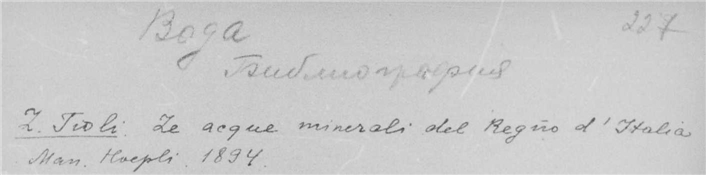 Вода 227
Библиография
L. Tioli. Le acque minerali del Regno d'Italia
Man. Hoepli. 1894.